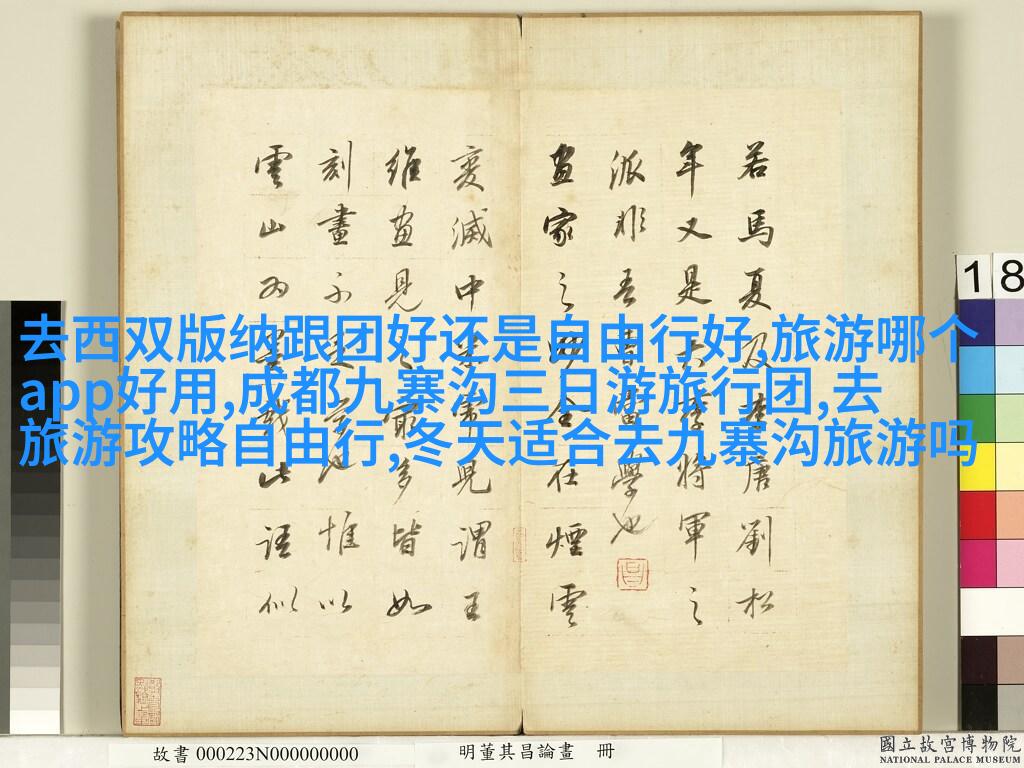 若馬夏及李唐劉松
年又是大李將軍之
派非吾曹當學也
畫家之妙全在煙雲
變滅中米虎兒謂王
維畫見之最多皆如
刻畫不足學也惟以
雲山為墨戲此語似
去西双版纳跟团好还是自由行好,旅游哪个
app好用,成都九寨沟三日游旅行团,去
旅游攻略自由行,冬天适合去九寨沟旅游吗
18
故書 000223N000000000
明董其昌論畫 冊
國立故宮博物院
NATIONAL PALACE MUSEUM